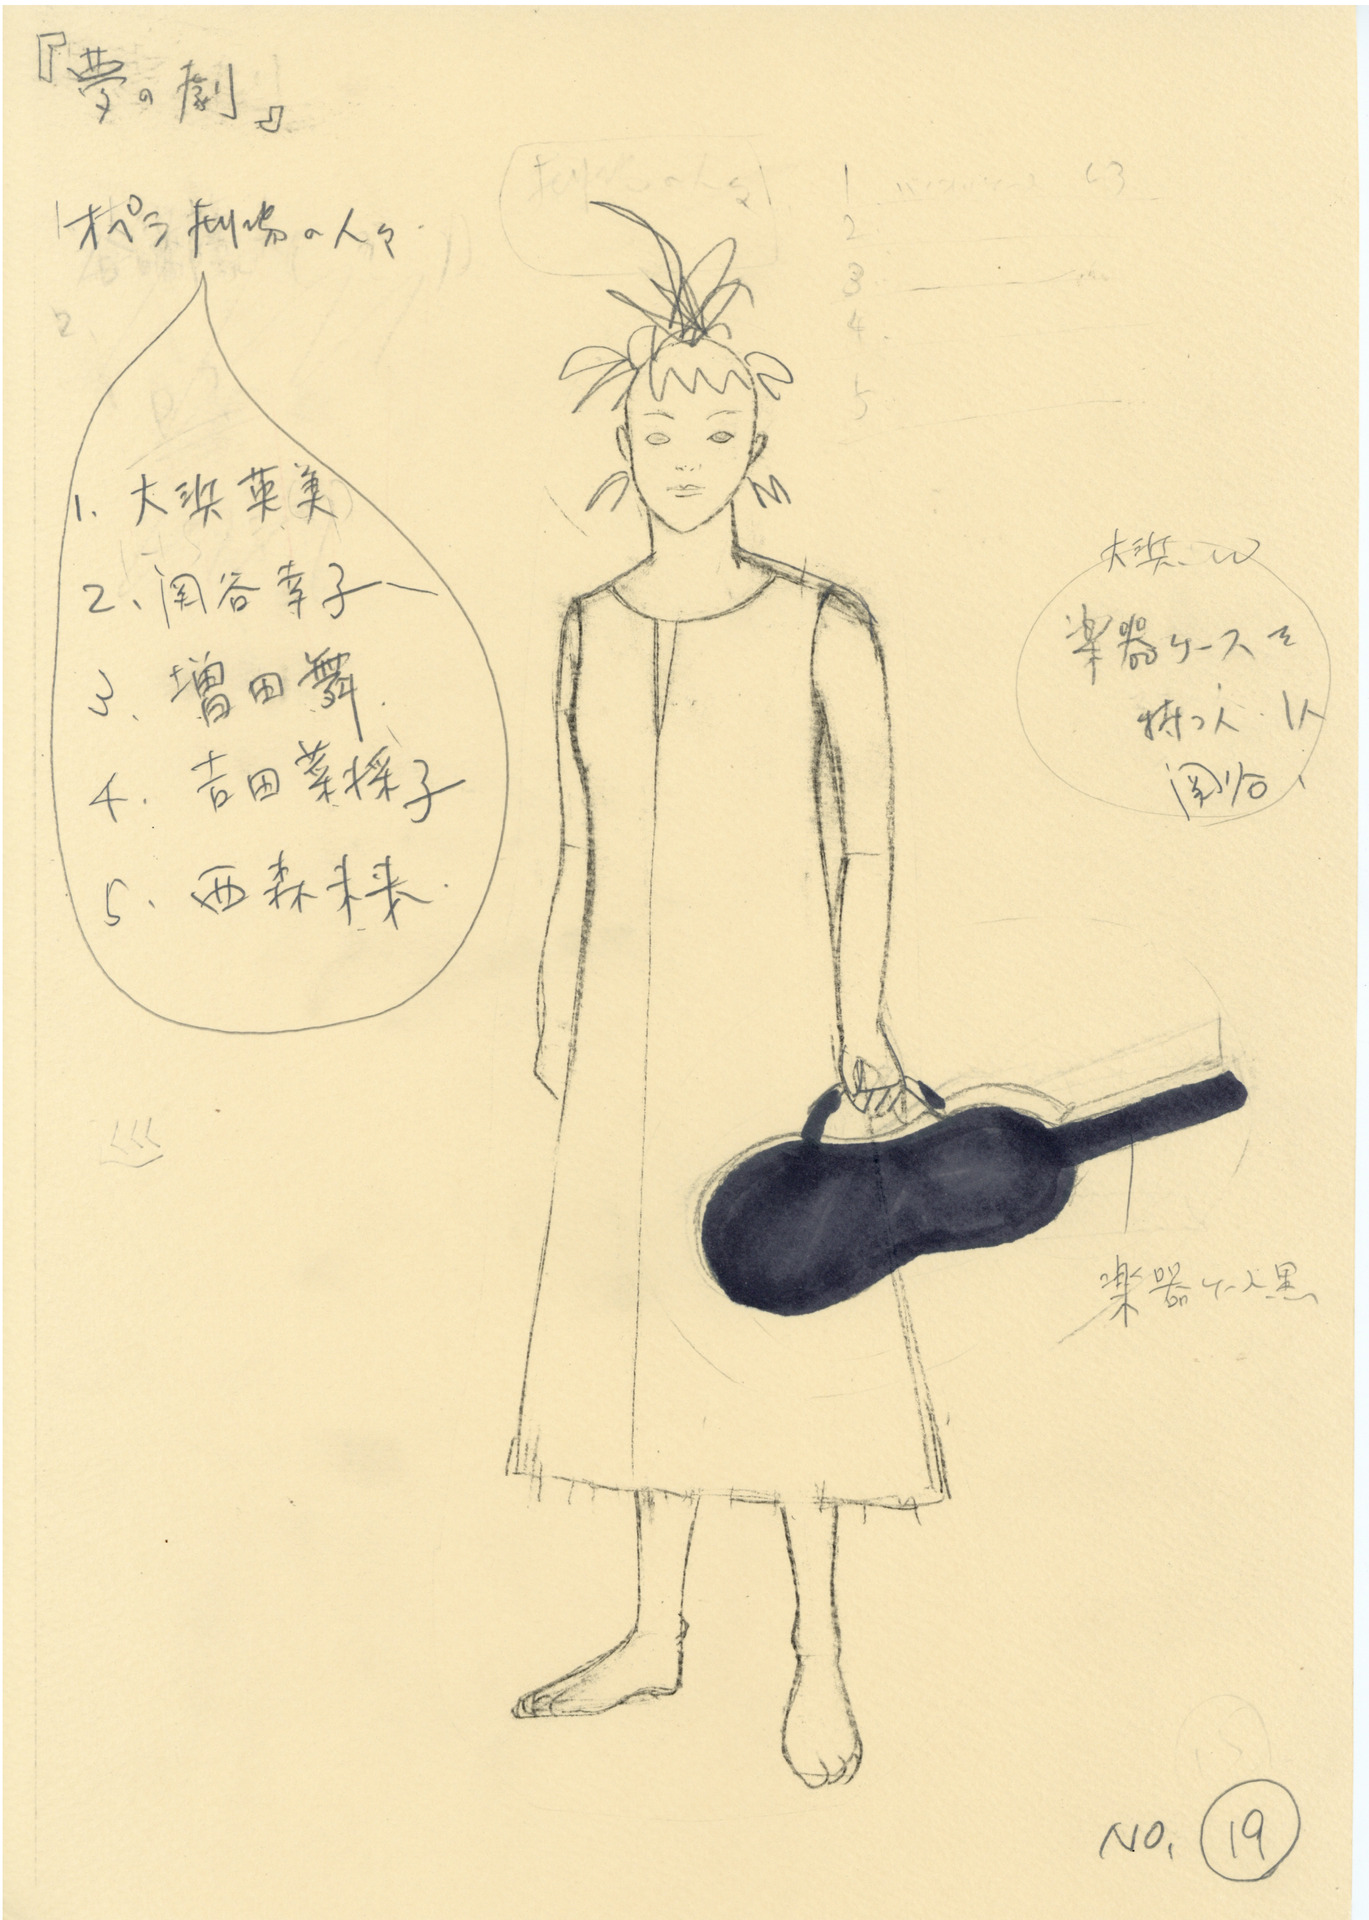 『夢の劇』
オペラ劇場の人々
1. 大浜英美
2. 関谷幸子
3. 増田舞
4. 吉田菜採子
5. 西森未来
大浜
楽器ケースを
持つ人 1人
関谷
楽器ケース黒
1
2
3
4
5
NO. 19